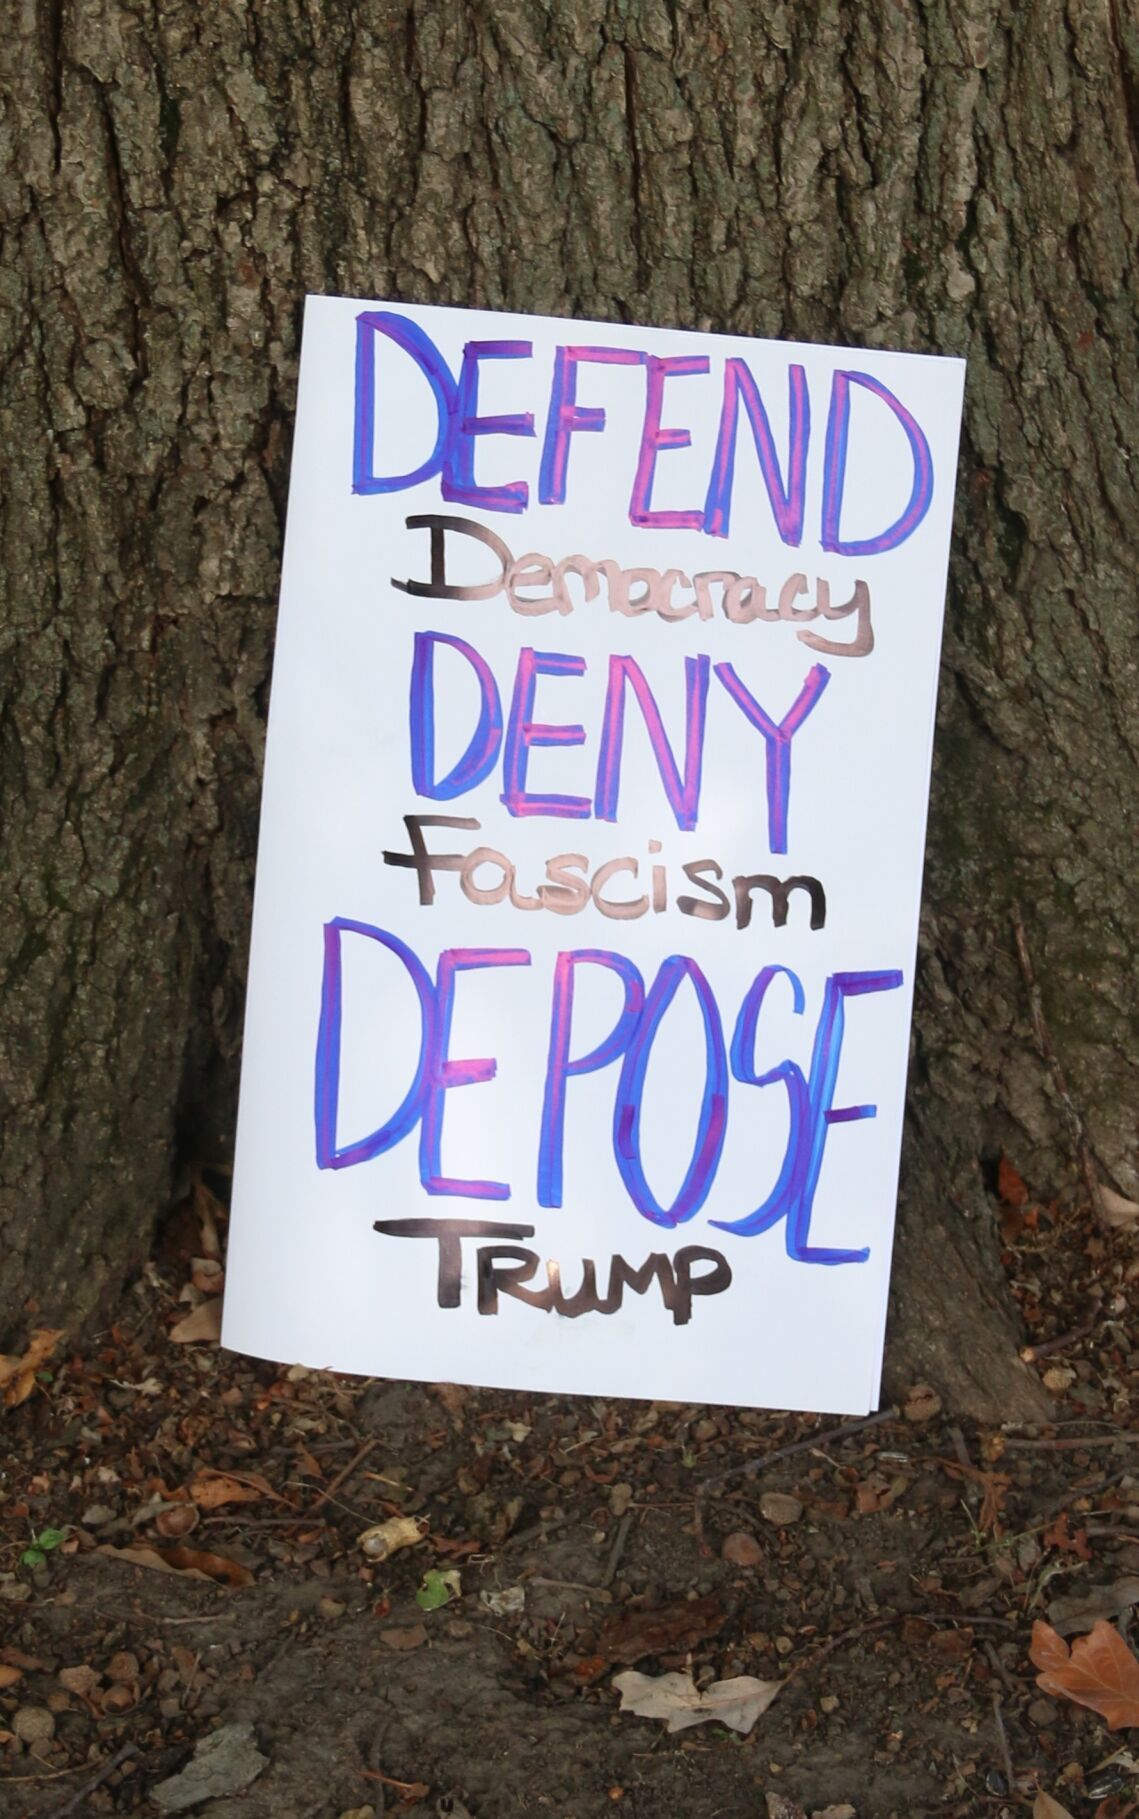 DEFEND
Democracy
DENY
Fascism
DEPOSE
TRUMP